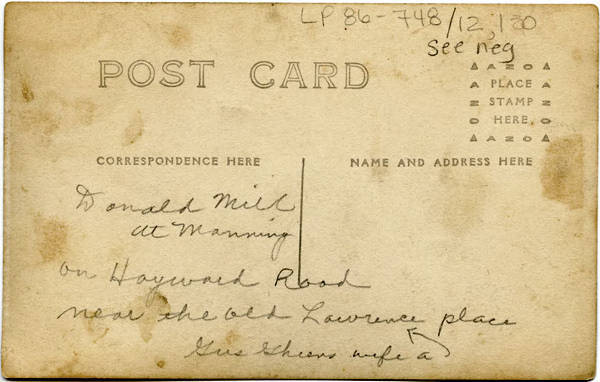 LP 86-748/12,130
See neg
POST CARD
AZO
PLACE
STAMP
HERE
AZO
CORRESPONDENCE HERE
NAME AND ADDRESS HERE
Donald Mill
at Manning
on Hayward Road
near the old Lawrence place
Gus wife a